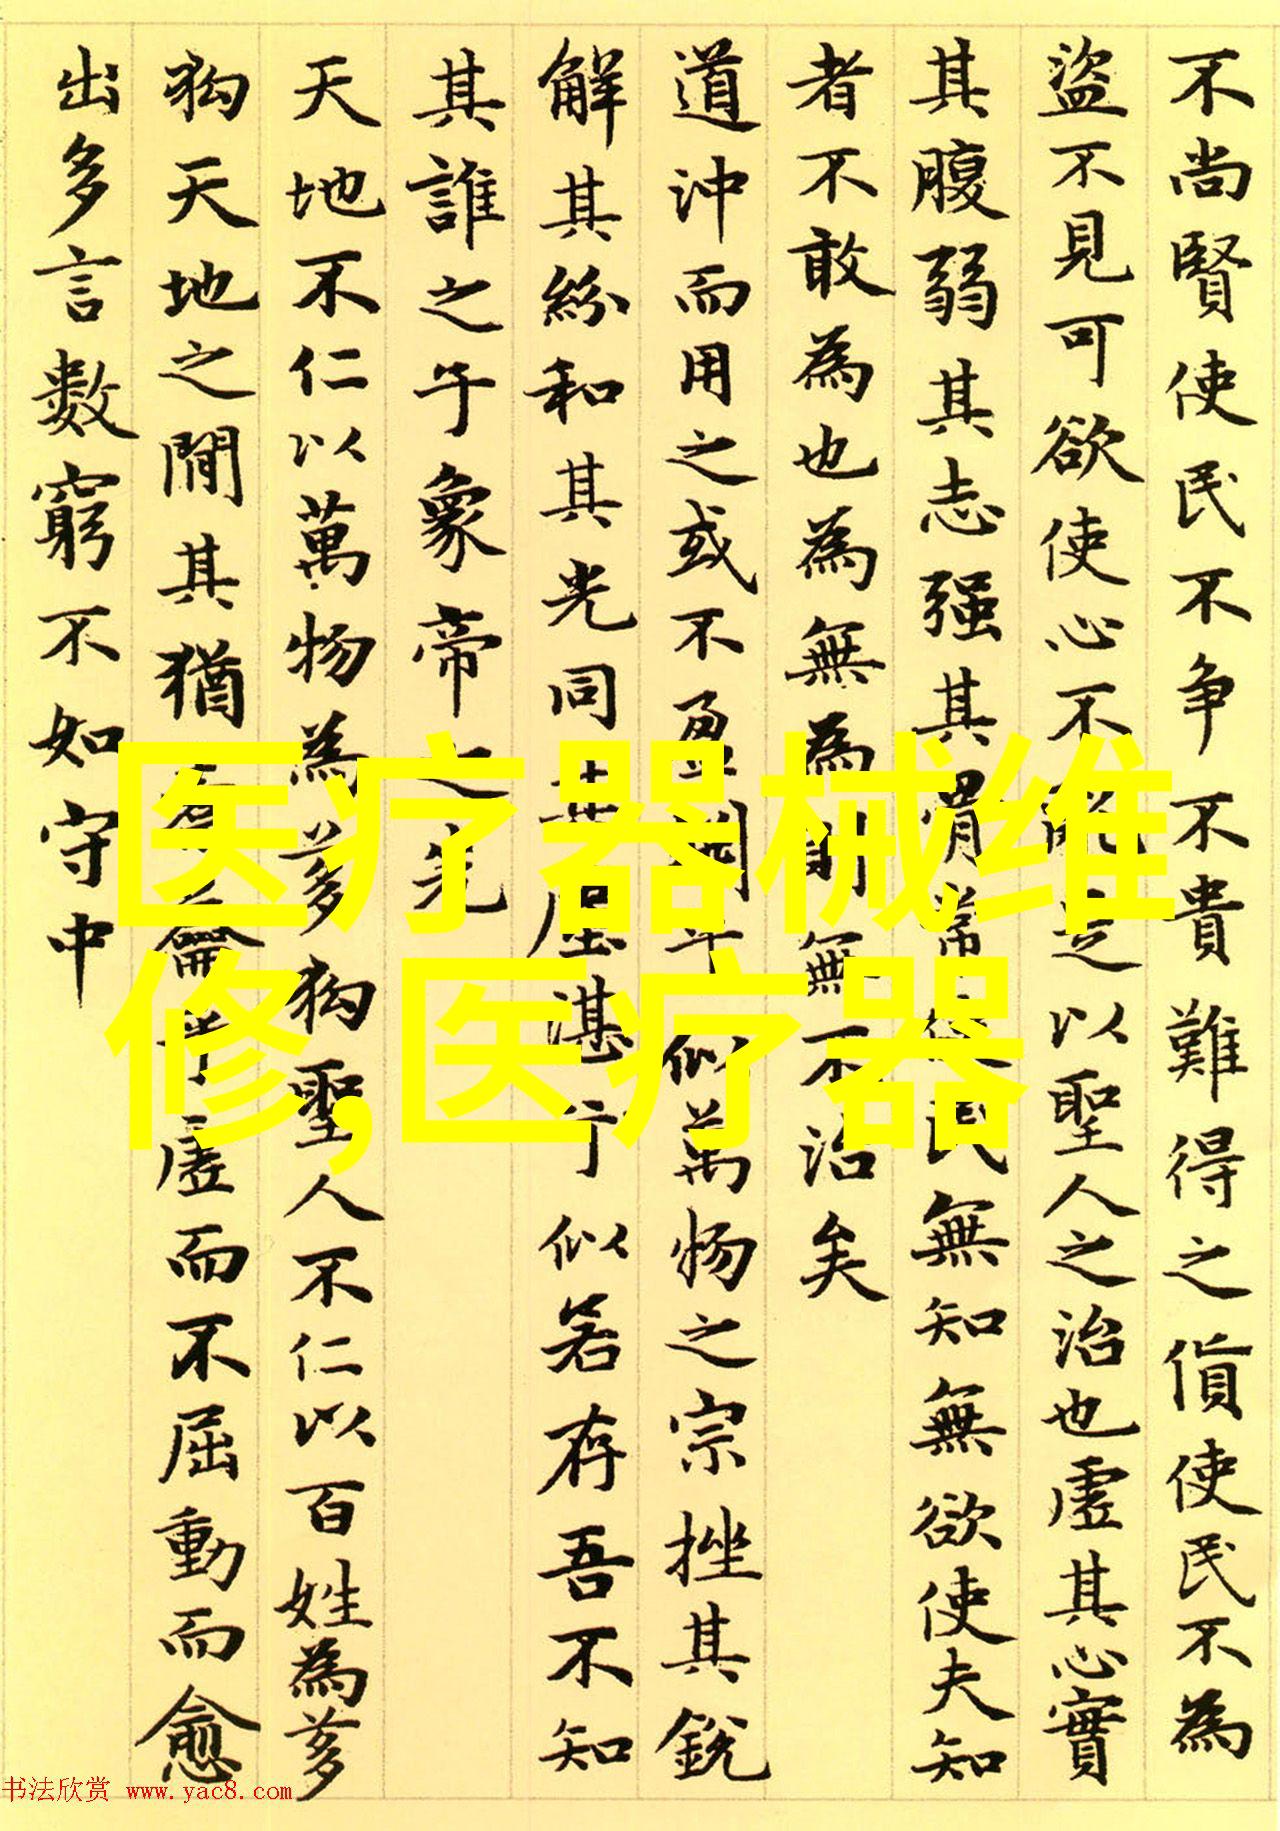 不尚賢使民不争不貴難得之貨使民不為
盜不見可欲使心不亂是以聖人之治也虛其心實
其腹弱其志强其骨常使民無知無欲使夫知
者不敢為也為無為則無不治矣
道沖而用之或不盈淵乎似萬物之宗挫其銳
解其紛和其光同其塵湛兮似若存吾不知
其誰之子象帝之先
天地不仁以萬物為芻狗聖人不仁以百姓為芻
狗天地之間其猶橐籥乎虛而不屈動而愈
出多言數窮不如守中
医疗器械维
修,医疗器
书法欣赏 www.yac8.com